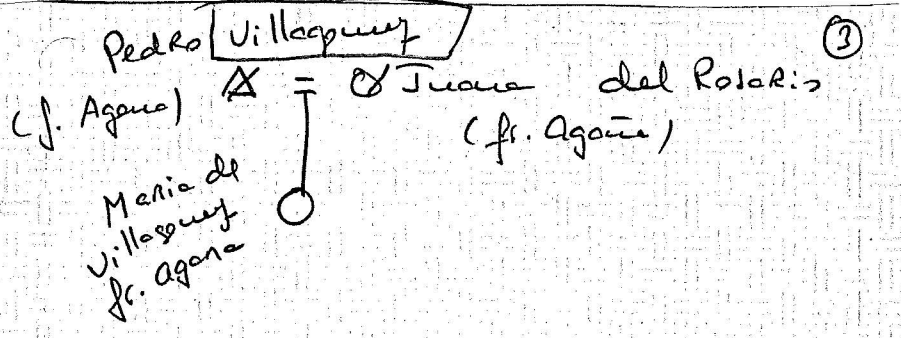 Pedro Villagomez
③
= Juana del Rosario
(f. Agana)
(fr. Agaña)
Maria de
Villagomez
fr. Agana